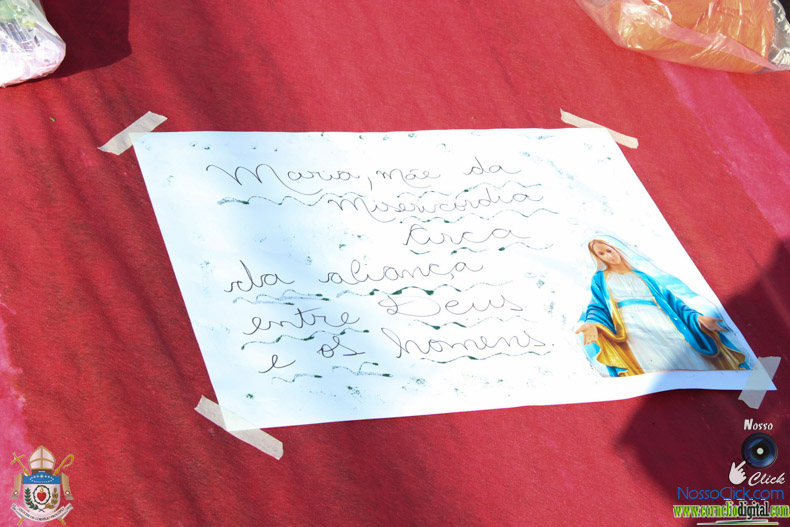 Maria, mãe da
Misericórdia
Arca
da aliança
entre Deus
e os homens.
Nosso
Click
NossoClick.com
www.corneliodigital.com